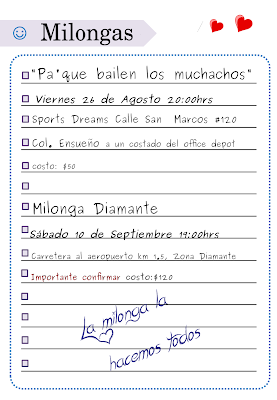 Milongas
"Pa'que bailen los muchachos"
Viernes 26 de Agosto 20:00hrs
Sports Dreams Calle San Marcos #120
Col. Ensueño a un costado del office depot
costo: $50
Milonga Diamante
Sábado 10 de Septiembre 19:00hrs
Carretera al aeropuerto km 1.5, Zona Diamante
Importante confirmar costo:$120
La milonga la
hacemos todos